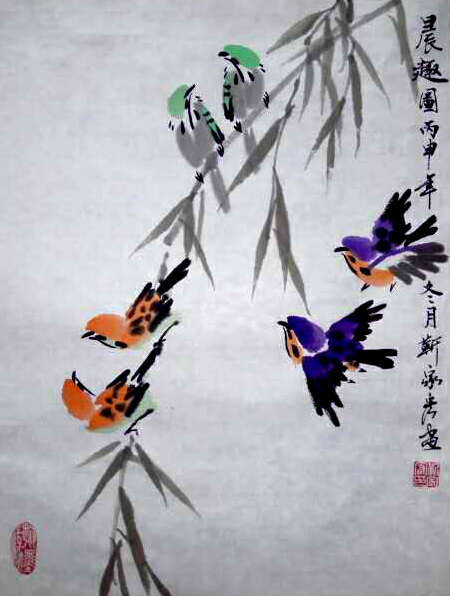 晨趣圖丙申年
冬月靳家贵画